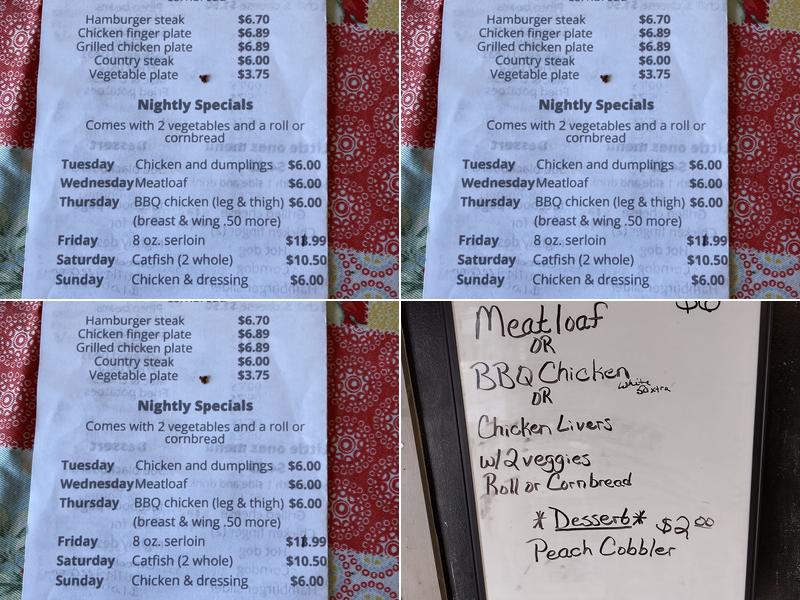 Hamburger steak $6.70
Chicken finger plate $6.89
Grilled chicken plate $6.89
Country steak $6.00
Vegetable plate $3.75
Nightly Specials
Comes with 2 vegetables and a roll or
cornbread
Tuesday Chicken and dumplings $6.00
Wednesday Meatloaf $6.00
Thursday BBQ chicken (leg & thigh) $6.00
(breast & wing .50 more)
Friday 8 oz. serloin
Saturday Catfish (2 whole) $10.50
Sunday Chicken & dressing $6.00
Hamburger steak $6.70
Chicken finger plate $6.89
Grilled chicken plate $6.89
Country steak $6.00
Vegetable plate $3.75
Nightly Specials
Comes with 2 vegetables and a roll or
cornbread
Tuesday Chicken and dumplings $6.00
Wednesday Meatloaf $6.00
Thursday BBQ chicken (leg & thigh) $6.00
(breast & wing .50 more)
Friday 8 oz. serloin
Saturday Catfish (2 whole) $10.50
Sunday Chicken & dressing $6.00
Hamburger steak $6.70
Chicken finger plate $6.89
Grilled chicken plate $6.89
Country steak $6.00
Vegetable plate $3.75
Nightly Specials
Comes with 2 vegetables and a roll or
cornbread
Tuesday Chicken and dumplings $6.00
Wednesday Meatloaf $6.00
Thursday BBQ chicken (leg & thigh) $6.00
(breast & wing .50 more)
Friday 8 oz. serloin
Saturday Catfish (2 whole) $10.50
Sunday Chicken & dressing $6.00
Meatloaf
OR
BBQ Chicken White
50 xtra
OR
Chicken Livers
w/2 veggies
Roll or Cornbread
* Dessert * $2.00
Peach Cobbler